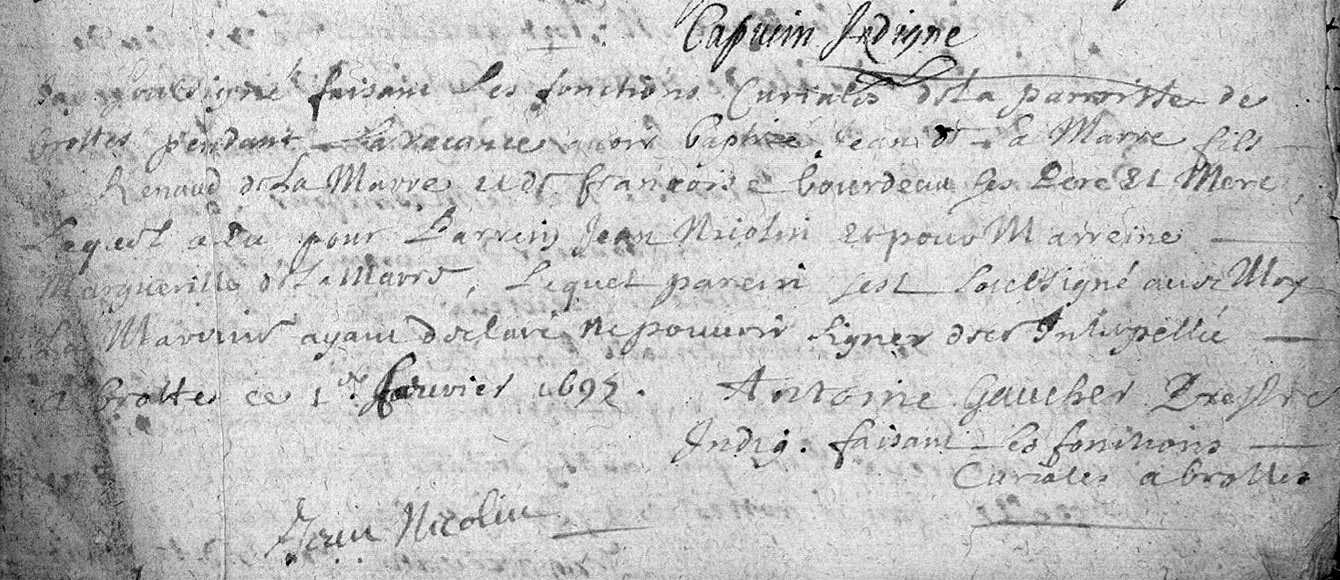 Capucin Indigne
Jay soulsigné faisant les fonctions Curiales de La parroisse de
brottes pendant La vacance avoir baptize Jean de La Marre fils
Renaud de La Marre et de francoise bourdeau ses Pere et Mere
Lequel a Eu pour Parrein Jean Nicolin et pour Marreine
Marguerille de La Marre, Lequel parein sest soulsigné avec Moy
La Marreine ayant declaré Ne pouvoir signer de ce Interpellée
a brotte ce 1er Janvier 1695. Antoine Gaucher Prestre
Indig. faisant les fonctions
Curiales a brottes
Jean Nicolin